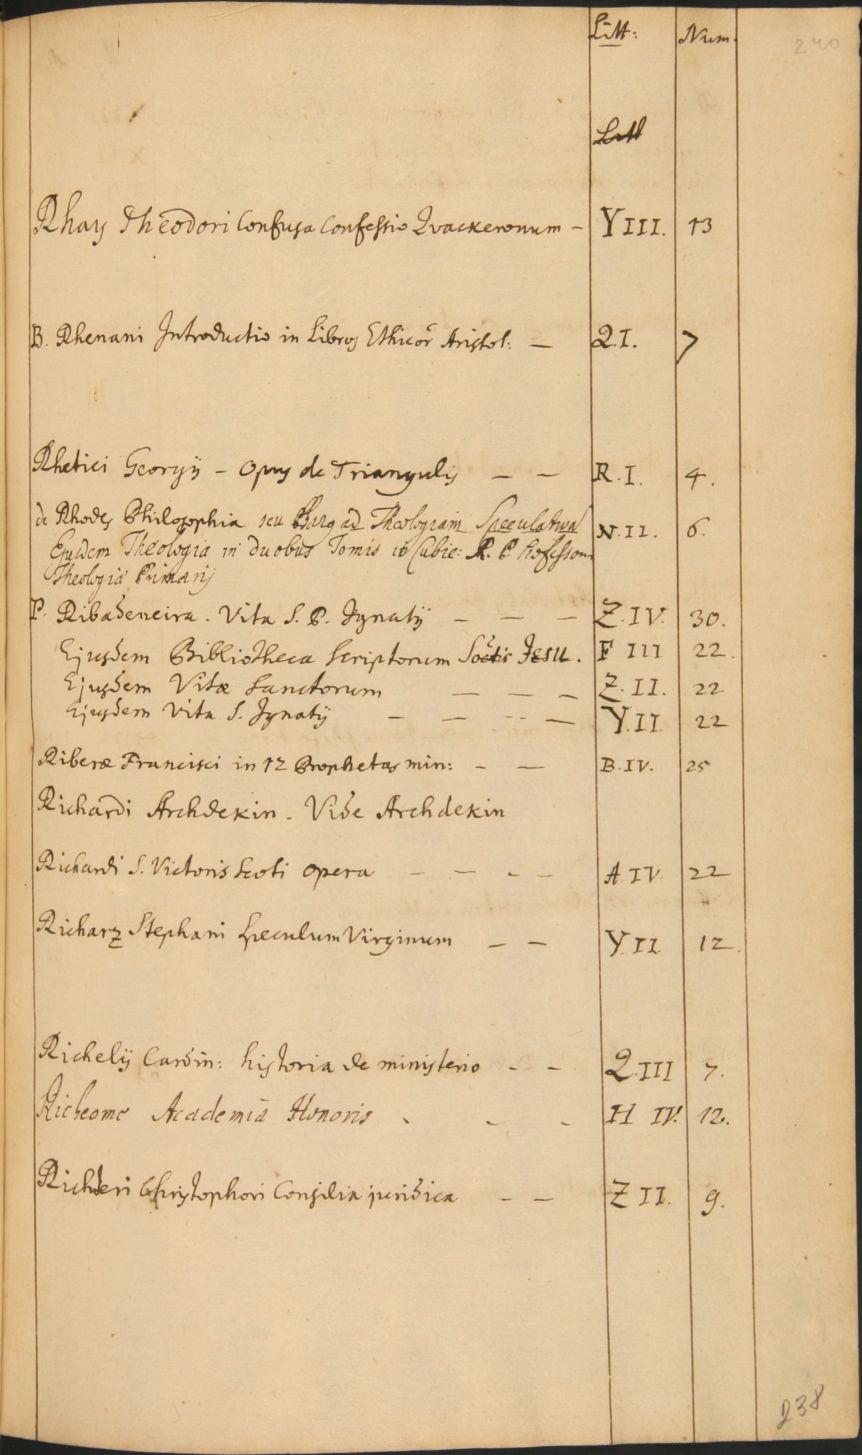 Litt: Num.
240
Litt
Rhay Theodori Confusa Confessio Quackeronum - Y III. 13
B. Rhenani Introductio in Libros Ethicor Aristol: — Q.I. 7
Rhetici Georgij - Opus de Triangulis — — R.I. 4.
de Rhodes Philosophia seu ad Theologiam Speculativa N.II. 6.
Ejusdem Theologia in duobus Tomis Cubic: R. P. Professoris
Theologiæ Primarij
P. Ribadeneira. Vita S. P. Ignatij — — — Z.IV. 30.
Ejusdem Bibliotheca Scriptorum Soctis Jesu. F III 22.
Ejusdem Vitæ Sanctorum — — — Z.II. 22
Ejusdem Vita S. Ignatij — — -- — Y.II 22
Riberæ Francisci in 12 Prophetas min: - — B.IV. 25
Richardi Archdekin. Vide Archdekin
Richardi S. Victoris Scoti opera — — - — A.IV 22
Richarz Stephani Speculum Virginum — — Y.II. 12.
Richelij Cardin: historia de ministerio - - Q.III 7.
Richeome Academia Honoris - - - H IV. 12.
Richteri Christophori Consilia juridica - — Z II. 9.
238